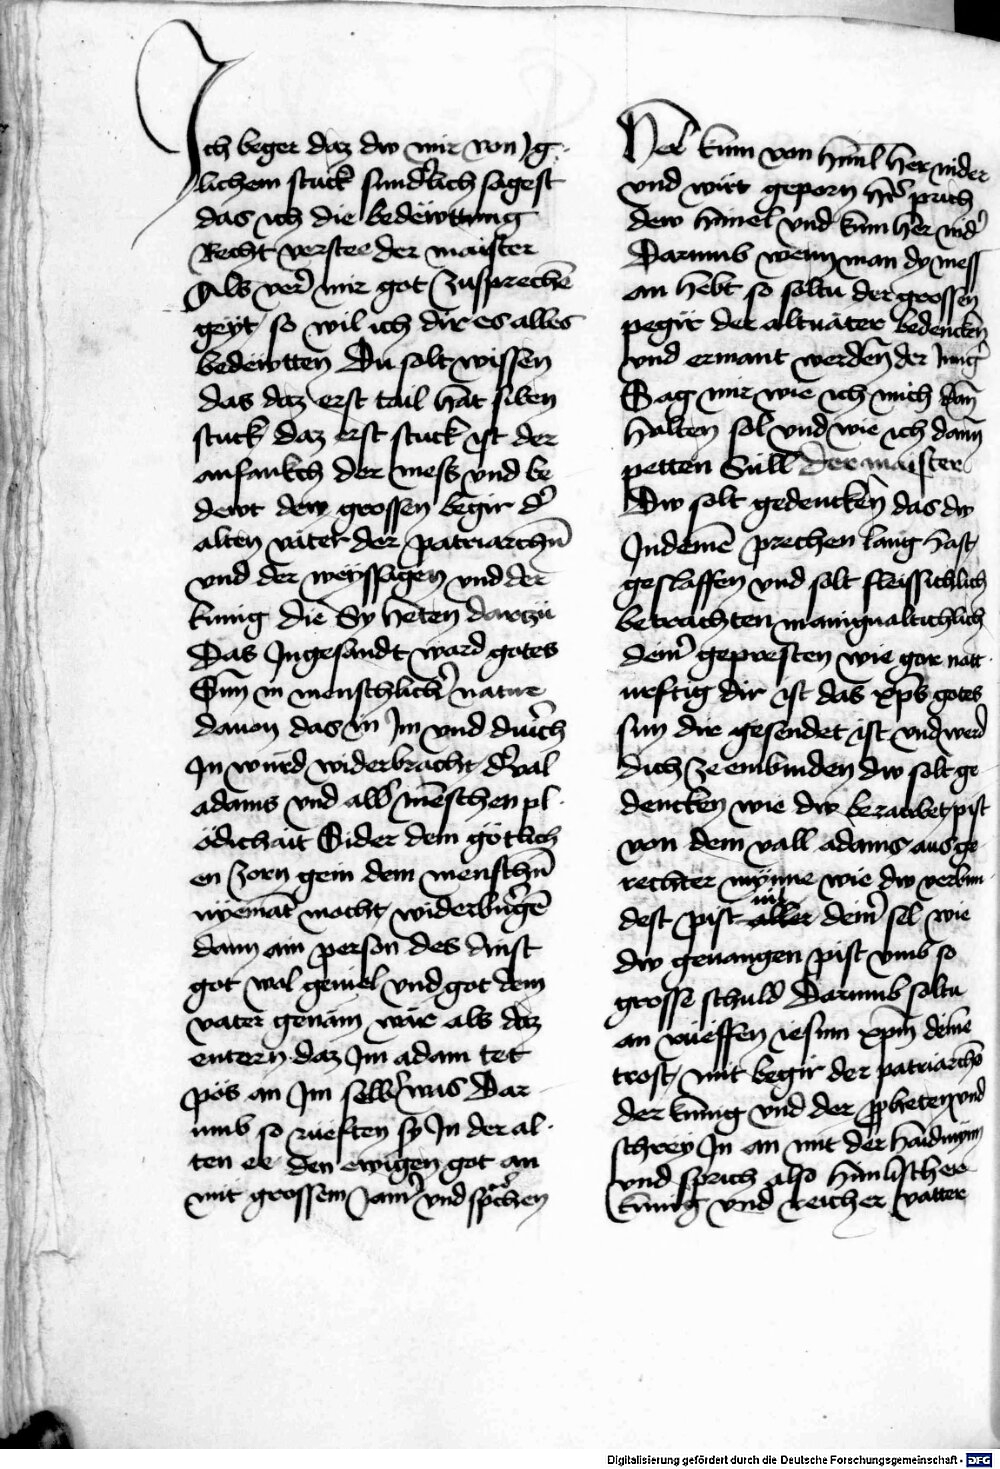 Ich beger daz dw mir von Jg
lichem stuck sunderlich sagest
das ich die bedewttung
Recht verstee der maister
Als ver mir got zusprechē
geyt so wil ich dir es alles
bedewtten Du solt wissen
das daz erst tail hat siben
stuck daz erst stuck ist der
anfankch der mess vnd be
dewt den grossen begir d
alten vater der patriarchn̄
vnd der weyssagen vnd der
kunig die Sy heten darzu
Das Jngesandt ward gotes
Sun in menschlich nature
dauon das in Jm vnd durch
Jn wurd widerbracht d val
adams vnd all menschen pl
ödichait Sider dem götlich
en zorn gein dem menschn̄
nyemat mocht widerbringē
dann ain person des dinst
got wal geuiel vnd got dem
vater genäm wär als daz
entern daz Jm adam tet
pös an Jm selb was Dar
umb so rueften sy Jn der al
ten ee den ewigen got an
mit grossem Jamer vnd sprachen
Her kum von himl her nider
vnd wirt geporn prich
dew himel vnd kum her nid
Darumb wenn man dy mess
an hebt so soltu der grossen
pegir der altuäter bedencken
vnd ermant werden der Jung
Sag mir wie ich mich dan
halten sol vnd wie ich dann
petten Sull Der maister
Dw solt gedencken das dw
Jn deinē prechen lang hast
geslaffen vnd solt fleissichlich
betrachten manigualtichlich
dein gepresten wie gar nott
urftig dir ist das xp̄s gotes
sun dir gesendet ist vnd werd
dich ze embinden dw solt ge
dencken wie dw beraubet pist
von dem vall adams aus ge
rechter mynne wie dw verbun
dest pist aller dein sel wie
dw geuangen pist vmb so
grosse schuld Darumb soltu
an rueffen iesum xpm̄ deine
trost mit begir der patriarchē
der kunig vnd der ꝓpheten vnd
schrey Jn an mit der
vnd sprich also himlischer
kunig vnd reicher vatter
Digitalisierung gefördert durch die Deutsche Forschungsgemeinschaft - DFG